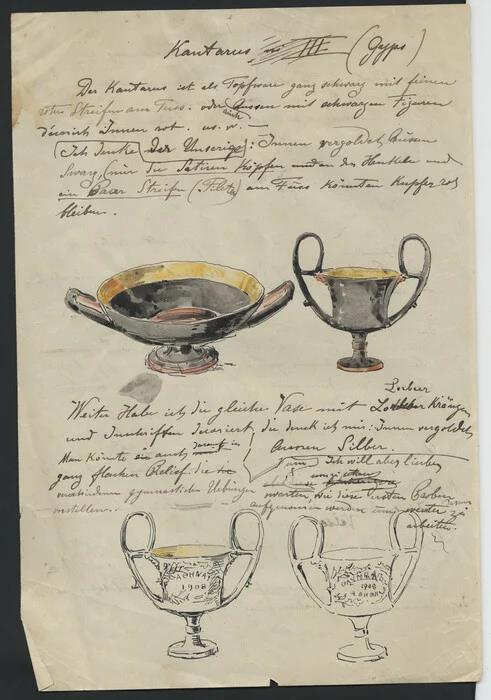 Kantarus III (Gyps)
Der Kantarus ist als Topfware ganz schwarz mit feinen
roten Streifen am Fuss. oder auch Aussen mit schwarzen Figuren
Innen rot. us. w. —
(Ich denke der Unserige: Innen vergoldet, Aussen
Swarz, (nur die Satiren Köpfen und an den Henkeln und
ein Paar Streifen (Filets) am Fuss könnten Kupfer rot
bleiben.
Weiter Habe ich die gleichen Vase mit Lorbeer Kränzen
und Inschriften decoriert, die denk ich mir: Innen vergoldet
Aussen Silber.
Man könnte auch darauf in
ganz flachen Relief die
verschiedenen gymnastischen Uebungen
vorstellen..
Ich will aber lieber
warten, wie diese ersten Proben
aufgenommen werden um weiter zu
arbeiten.
ΑΘΗΝΑΙ
1908
1908
ΑΘΗΝΑΙ